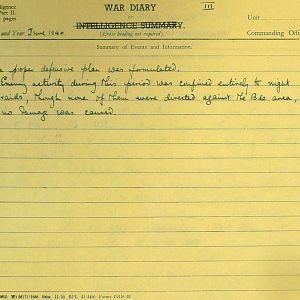 elligence
Part II.
e pages
WAR DIARY
or
INTELLIGENCE SUMMARY.
(Erase heading not required).
III
Unit
Commanding Offi
and Year June 1940
Summary of Events and Information.
proper defensive plan was formulated.
Enemy activity during this period was confined entirely to night
raids, though none of them were directed against the Bde area,
no damage was caused.